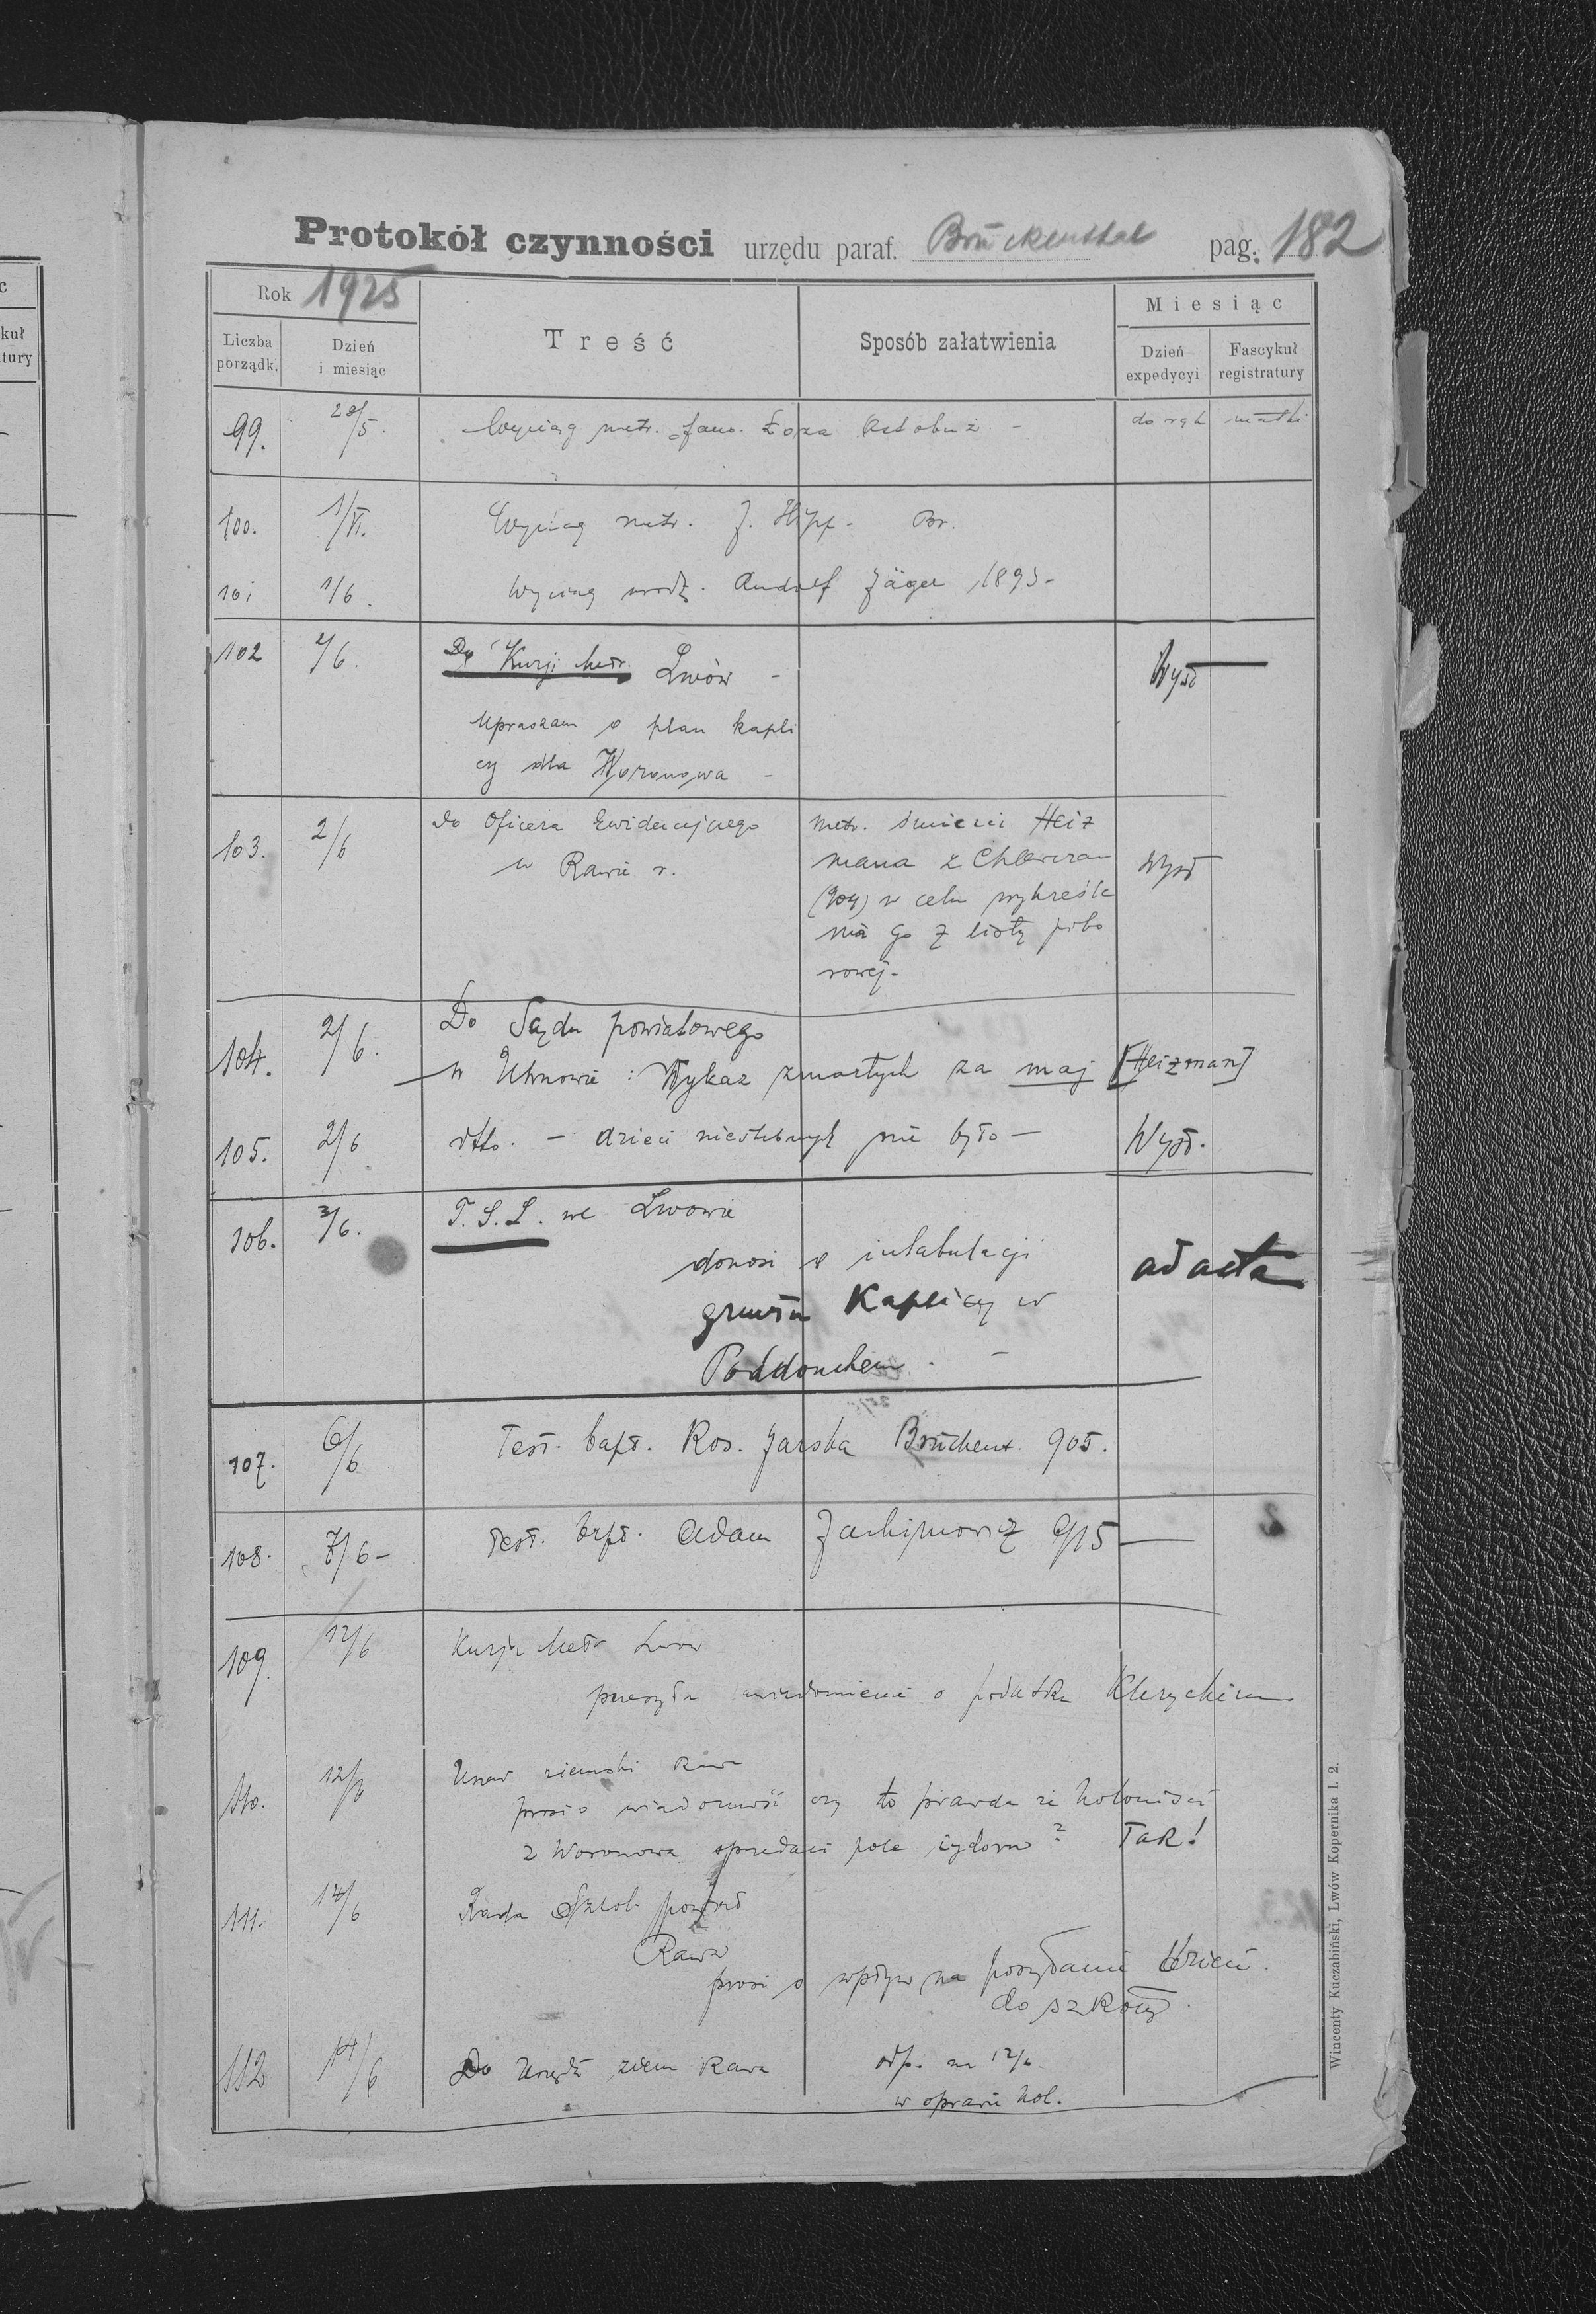 Protokół czynności urzędu paraf. Brückenthal pag. 182
Rok 1925
Miesiąc
Liczba porządk.
Dzień i miesiąc
Treść
Sposób załatwienia
Dzień expedycyi
Fascykuł registratury
99. 28/5. Wyciąg metr. Jano. Łoza Ostobuż - do rąk matki
100. 1/VI. Wyciąg metr. J. Hipp - Por.
101 1/6. Wyciąg urodz. Rudolf Jäger 1893-
102 2/6. Do Kurji Metr. Lwów - Wysł
Upraszam o plan kapli
cy dla Woronowa -
103. 2/6 do Oficera Ewidencyjnego
w Rawie r.
metr. śmierci Heiz
mana z Chlewczan
(904) w celu wykreśle
nia go z listy pobo
rowej.
Wysł
104. 2/6. Do Sądu powiatowego
w Uhnowie : Wykaz zmarłych za maj [Heizman]
105. 2/6 dtto. - dzieci nieślubnych nie było - Wysł.
106. 3/6. T.S.L. we Lwowie
donosi o intabulacji
gruntu Kaplicy w
Poddoubem. -
ad acta
107. 6/6 Test. bapt. Ros. Jarska Brückent. 905.
108. 7/6 - Test. bapt. Adam Jachimowicz 915 -
109. 12/6 Kurja Metr Lwów
przesyła uwiadomienie o podatku
110. 12/6 Urząd ziemski Rawa
prosi o wiadomość czy to prawda że koloniści
z Woronowa sprzedali pole żydom? TAK!
111. 14/6 Rada Szkol. pow
Rawa
prosi o wpływ na posyłanie dzieci.
do szkoły.
112 14/6 Do Urzędu ziem Rawa odp. na 12/6
w sprawie kol.
Wincenty Kuczabiński, Lwów Kopernika l. 2.
c
kuł
tury